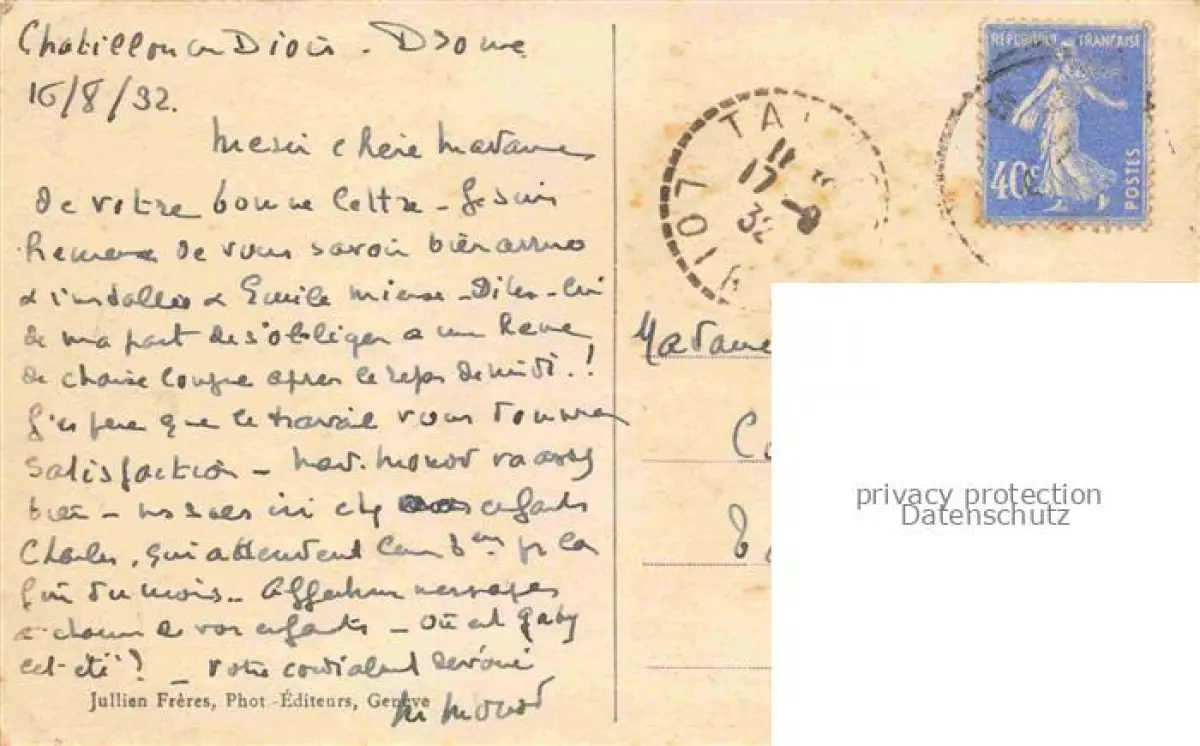 Chatillon en Diois - Drome
16/8/32.
Merci chère Madame
de votre bonne lettre - Je suis
de vous savoir bien
& Emile mieux - Dites-lui
de ma part de s'obliger a une heure
de chaise longue apres le repos de midi.!
J'espère que le travail vous donne
satisfaction - Mad. Monod va assez
bien - ns soes ici chz enfants
Charles, qui attendent leur 3em pr la
fin du mois - Affectueux messages
a chacun de vos enfants - Où est Gaby
cet été? - Votre cordialemt dévoué
M Monod
Jullien Frères, Phot.-Éditeurs, Genève
REPUBLIQUE FRANÇAISE
40c
POSTES
TA
11
17 - 8
32
LOIR
Madame
privacy protection
Datenschutz